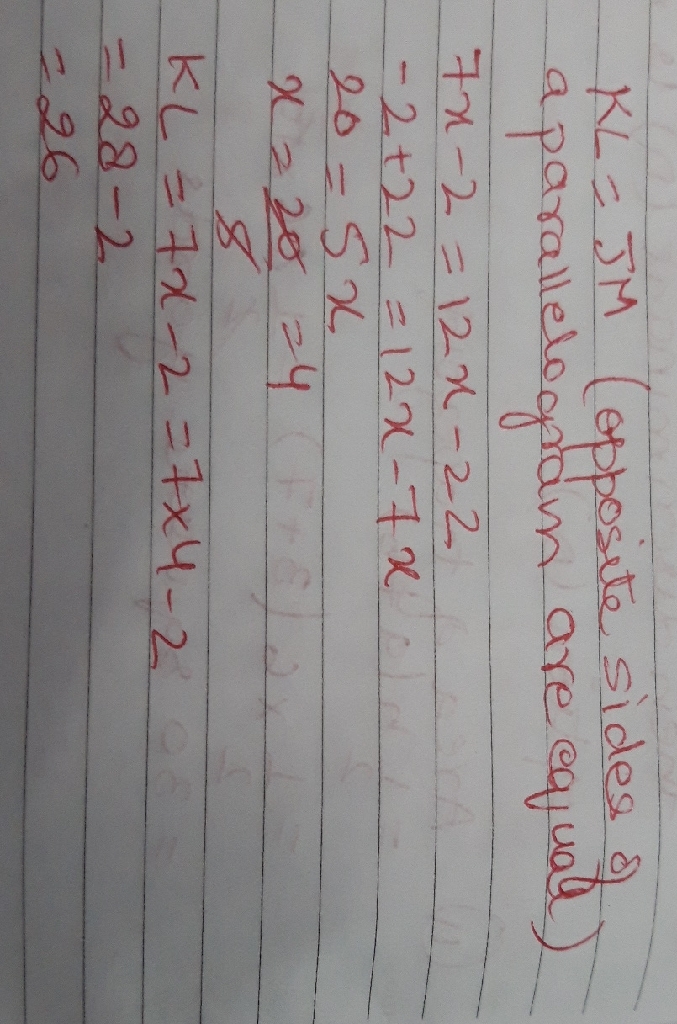 KL = JM (opposite sides of
a parallelogram are equal)
7x - 2 = 12x - 22
-2 + 22 = 12x - 7x
20 = 5x
x = 20/5 = 4
KL = 7x - 2 = 7×4 - 2
= 28 - 2
= 26